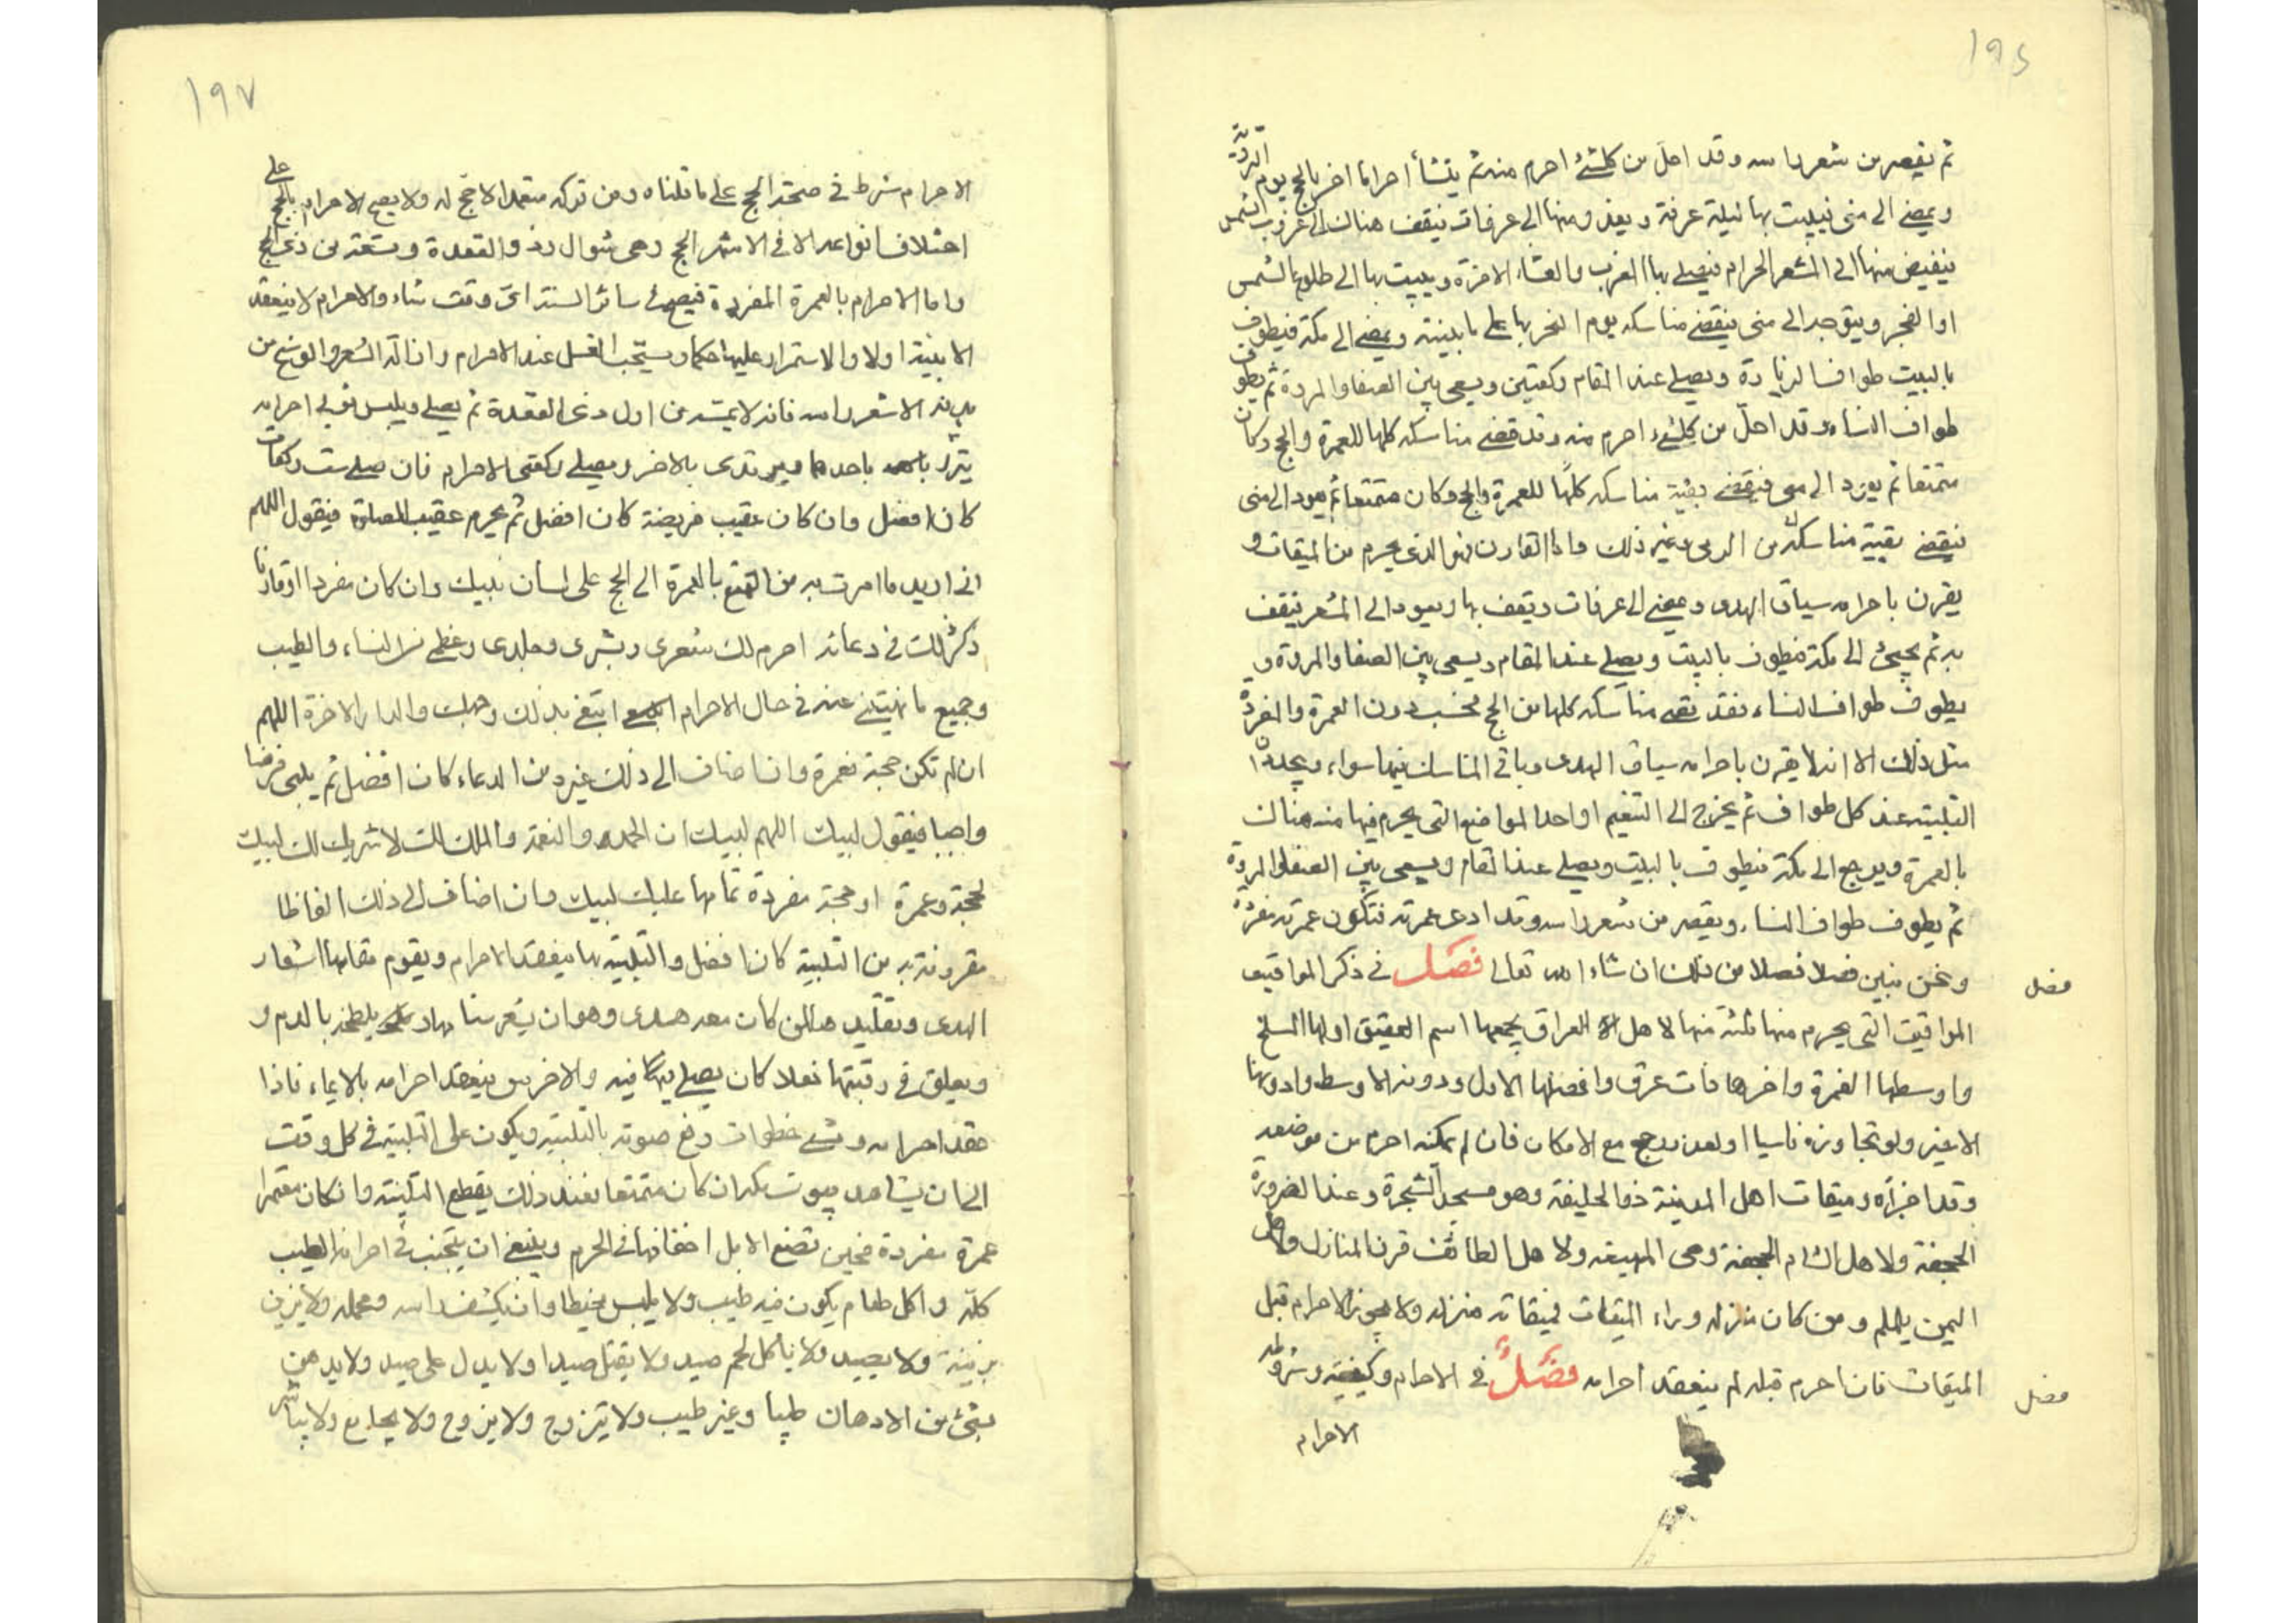 ١٩٤
ثم يقصر من شعر راسه وقد احل من كلشئ احرم منه ثم ينشأ احراما اخر بالحج يوم التروية
ويمضى الى منى فيبيت بها ليلة عرفة ويغد ومنها الى عرفات فيقف هناك الى غروب الشمس
فيفيض منها الى المشعر الحرام فيصلى بها المغرب والعشاء الاخرة ويبيت بها الى طلوع الشمس
او الفجر ويتوجه الى منى فيقضى مناسكه يوم النحر بها على ما بينته ويمضى الى مكة فيطوف
بالبيت طواف الزيارة ويصلى عند المقام ركعتين ويسعى بين الصفا والمروة ثم يطوف
طواف النساء وقد احلّ من كلشئ احرم منه وقد قضى مناسكه كلها للعمرة والحج وكان
متمتعا ثم يعود الى منى فيقضى بقية مناسكه كلّها للعمرة والحج وكان متمتعا ثم يعود الى منى
فيقضى بقية مناسكه من الرمى وغير ذلك واما القارن فهو الذى يحرم من الميقات و
يقرن باحرامه سياق الهدى ويمضى الى عرفات ويقف بها ويعود الى المشعر فيقف
به ثم يجيئ الى مكة فيطوف بالبيت ويصلى عند المقام ويسعى بين الصفا والمروة و
يطوف طواف النساء فقد قضى مناسكه كلها من الحج فحسب دون العمرة والمفرد
مثل ذلك الا انه لا يقرن باحرامه سياق الهدى وباقى المناسك فيها سواء ويجددان
التلبية عند كل طواف ثم يخرج الى التنعيم او احد المواضع التى يحرم فيها منه هناك
بالعمرة ويرجع الى مكة فيطوف بالبيت ويصلى عند المقام ويسعى بين الصفا والمروة
ثم يطوف طواف النساء ويقصر من شعر راسه وقد ادى عمرته فتكون عمرته مفردة
ونحن نبين فصلا فصلا من ذلك ان شاء الله تعالى فصل فى ذكر المواقيت
فصل
المواقيت التى يحرم منها ثلثة منها لاهل العراق يجمعها اسم العقيق اولها المسلخ
واوسطها الغمرة واخرها ذات عرق وافضلها الاول ودونه الاوسط وادونها
الاخير ولو تجاوزه ناسيا او لعذر رجع مع الامكان فان لم يمكنه احرم من موضعه
وقد اجزأه وميقات اهل المدينة ذو الحليفة وهو مسجد الشجرة وعند الضرورة
الجحفة ولاهل الشام الجحفة وهى المهيعه ولاهل الطائف قرن المنازل ولاهل
اليمن يلملم ومن كان منزله وراء الميقات فميقاته منزله ولا يجوز الاحرام قبل
الميقات فان احرم قبله لم ينعقد احرامه فصل فى الاحرام وكيفيته وشروطه
فصل
الاحرام
١٩٧
الاحرام شرط فى صحة الحج على ما قلناه ومن تركه متعمدا لا حج له ولا يصح الاحرام بالحج على
اختلاف انواعه الا فى الاشهر الحج وهى شوال وذو القعدة وتسعة من ذى الحج
واما الاحرام بالعمرة المفردة فيصح فى سائر السنة اى وقت شاء والاحرام لا ينعقد
الا بنية اولا والاستمرار عليها حكما ويستحب الغسل عند الاحرام وازالة الشعر والوسخ من
بدنه الا شعر راسه فانه لا يمسه من اول ذى القعدة ثم يصلى ويلبس ثوبى احرامه
يتزر باحدهما ويرتدى بالاخر ويصلى ركعتى الاحرام فان صلى ست ركعات
كان افضل وان كان عقيب فريضة كان افضل ثم يحرم عقيب الصلوة فيقول اللهم
انى اريد ما امرت به من التمتع بالعمرة الى الحج على لسان نبيك وان كان مفردا او قارنا
ذكر ذلك فى دعائه احرم لك شعرى وبشرى وجلدى وعظمى من النساء والطيب
وجميع ما نهيتنى عنه فى حال الاحرام ابتغى بذلك وجهك والدار الاخرة اللهم
ان لم تكن حجة فعمرة وان اضاف الى ذلك غيره من الدعاء كان افضل ثم يلبى فرضا
واجبا فيقول لبيك اللهم لبيك ان الحمد والنعمة والملك لك لا شريك لك لبيك
بحجة وعمرة او حجة مفردة تمامها عليك لبيك وان اضاف الى ذلك الفاظا
مقرونة به من التلبية كان افضل والتلبية بها ينعقد الاحرام ويقوم مقامها اشعار
الهدى وتقليده لمن كان معه هدى وهو ان يشعر سنامها ويلطخه بالدم و
ويعلق فى رقبتها نعلا كان يصلى فيه والاخرس ينعقد احرامه بالايماء فاذا
عقد احرامه ومشى خطوات رفع صوته بالتلبية ويكون على التلبية فى كل وقت
الى ان يشاهد بيوت مكة ان كان متمتعا فعند ذلك يقطع التلبية وان كان معتمرا
عمرة مفردة فحين تضع الابل اخفافها فى الحرم وينبغى ان يتجنب فى احرامه الطيب
كلّه واكل طعام يكون فيه طيب ولا يلبس مخيطا وان يكشف راسه ومحمله ولا يتزين
بزينة ولا يصيد ولا ياكل لحم صيد ولا يقتل صيدا ولا يدل على صيد ولا يدهن
بشئ من الادهان طيبا وغير طيب ولا يتزوج ولا يزوج ولا يجامع ولا يباشر